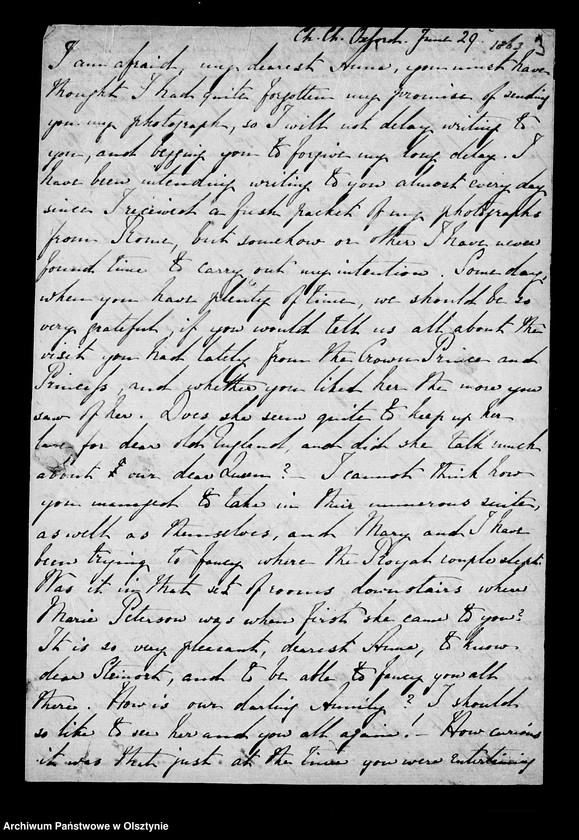 Ch. Ch. Oxford. June 29 1863
I am afraid, my dearest Anna, you must have
thought I had quite forgotten my promise of sending
you my photograph, so I will not delay writing to
you, and begging you to forgive my long delay. I
have been intending writing to you almost every day
since I received a fresh packet of my photographs
from Rome, but somehow or other I have never
found time to carry out my intention. Some day,
when you have plenty of time, we should be so
very grateful if you would tell us all about the
visit you had lately from the Crown Prince and
Princess, and whether you liked her the more you
saw of her. Does she seem quite to keep up her
love for dear old England, and did she talk much
about our dear Queen? — I cannot think how
you managed to take in their numerous suites,
as well as themselves, and Mary and I have
been trying to fancy where the Royal couple slept.
Was it in that set of rooms downstairs where
Marie Peterson was when first she came to you?
It is so very pleasant, dearest Anna, to know
dear Steinort, and to be able to fancy you all
there. How is our darling Aunty? I should
so like to see her and you all again! — How curious
it was that just at the time you were entertaining
Archiwum Państwowe w Olsztynie